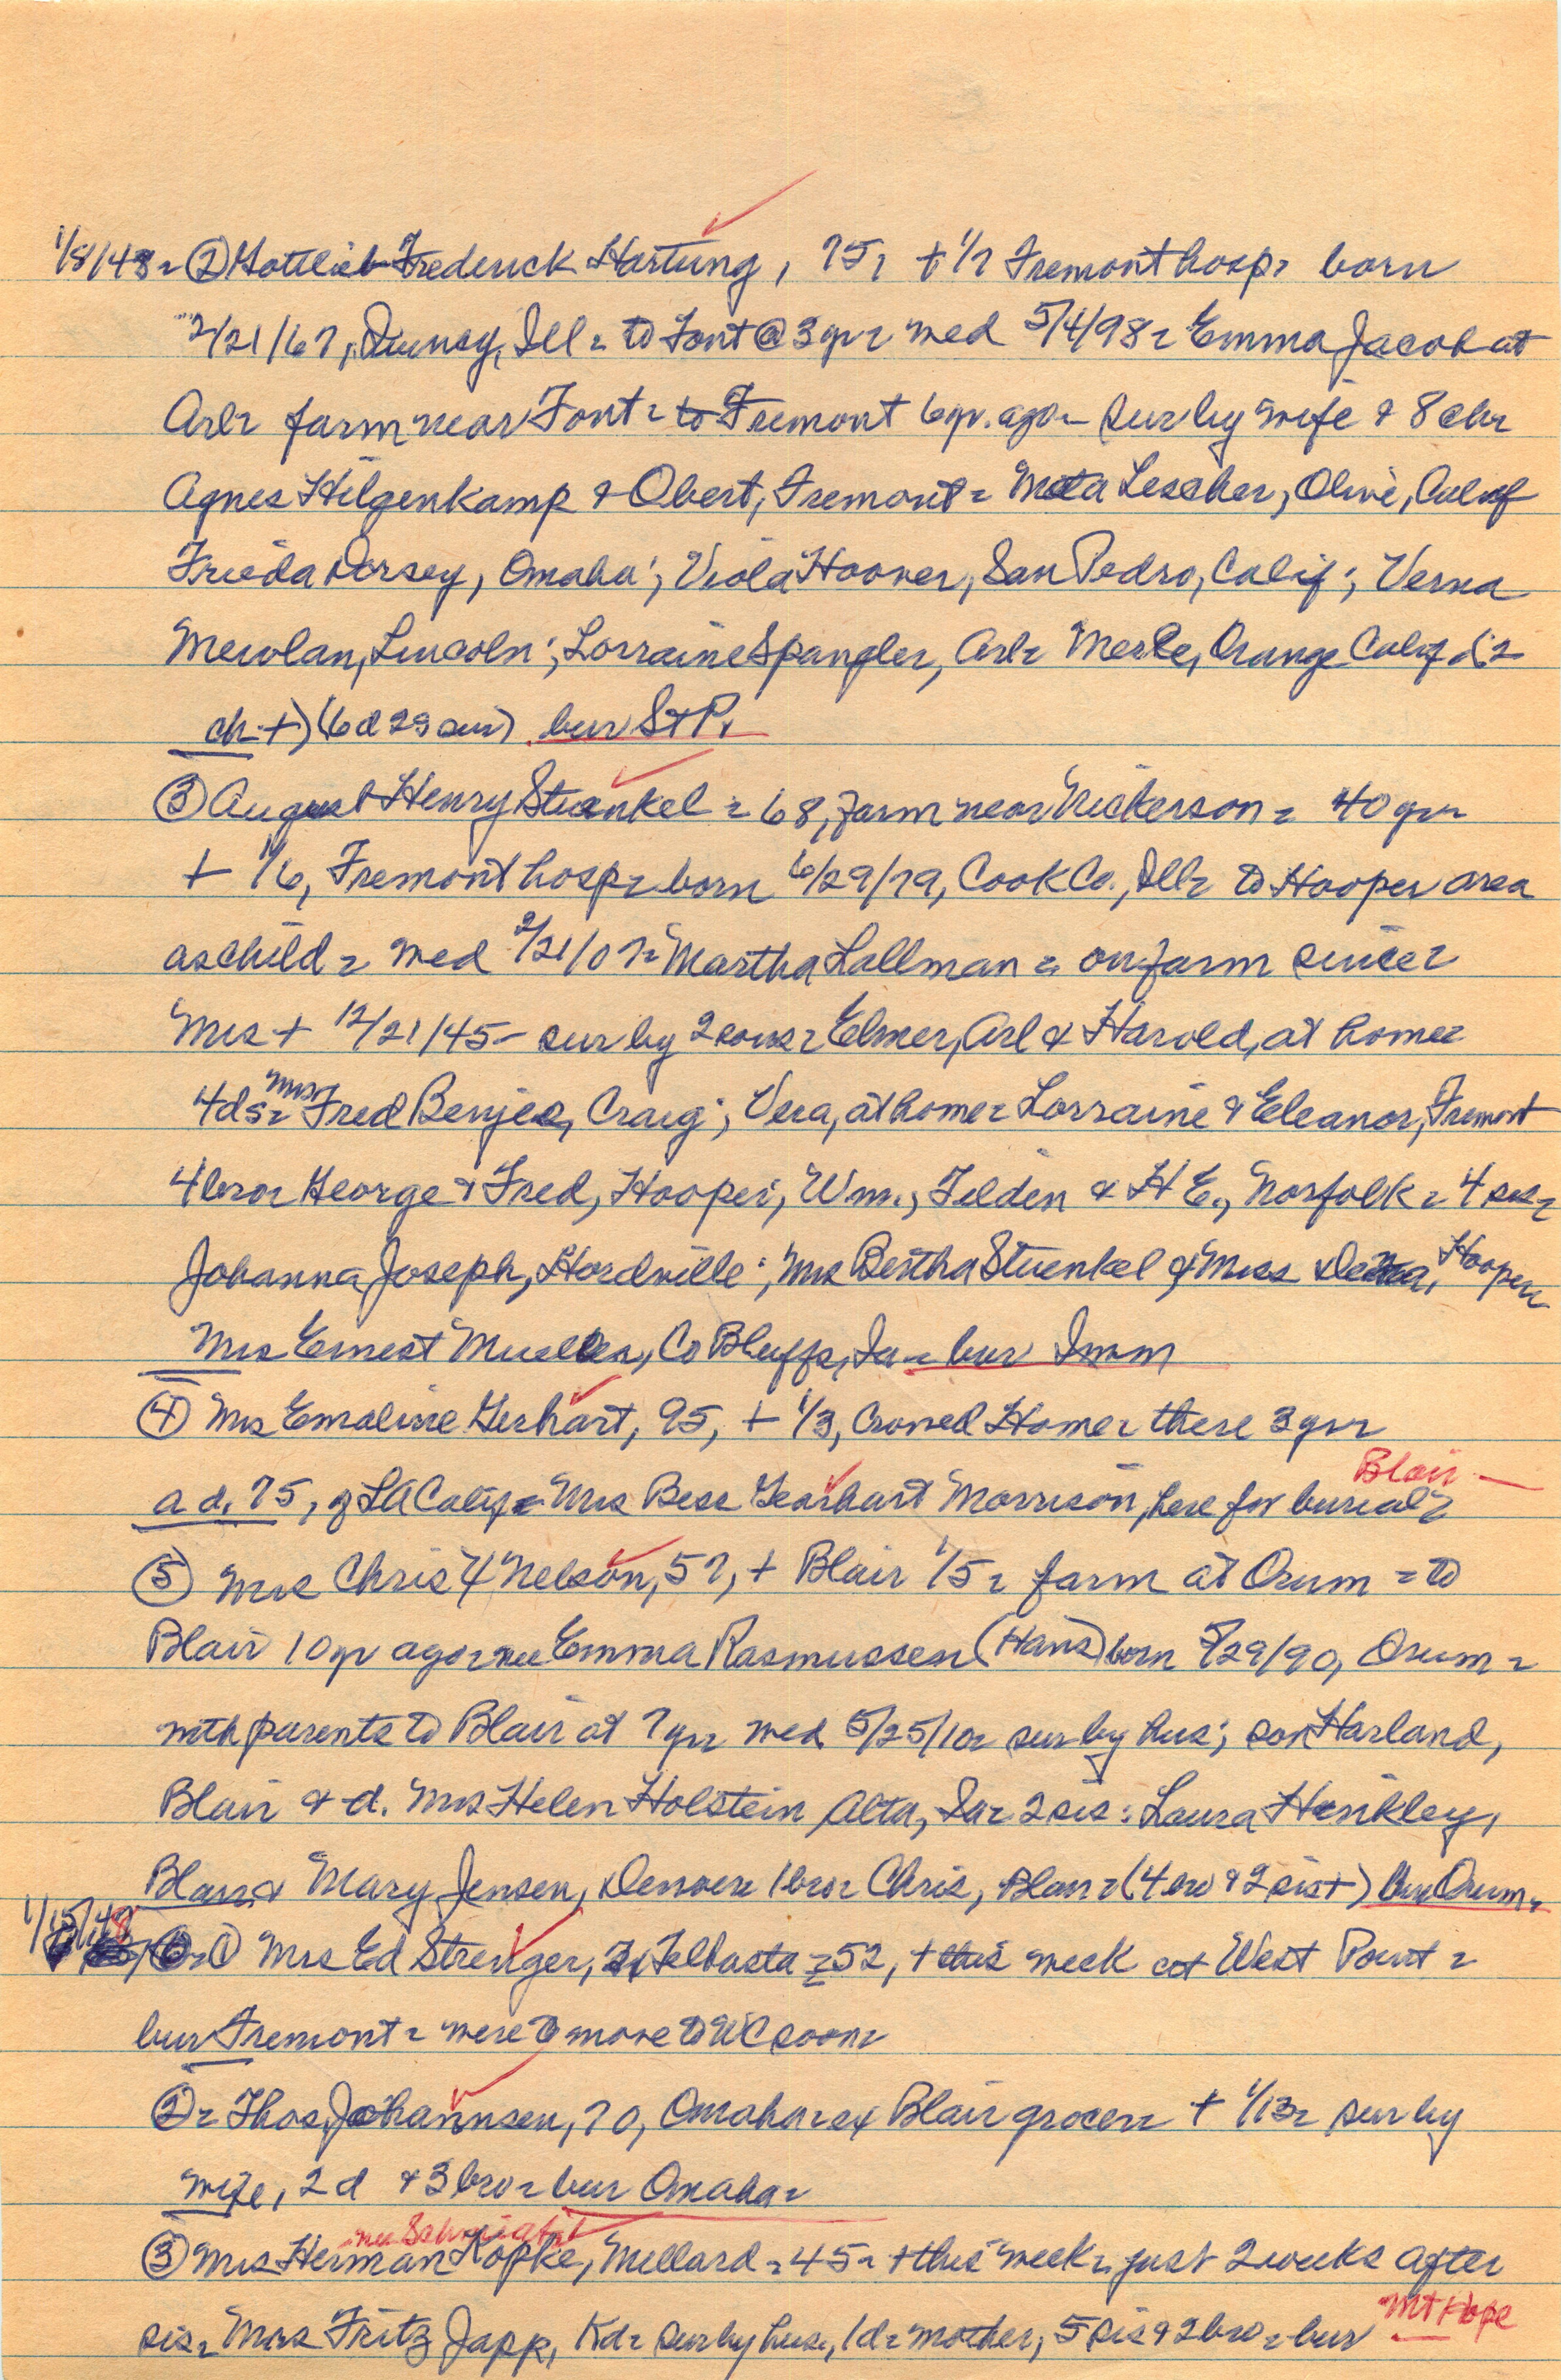 1/8/48 - ② Gottlieb Frederick Hartung, 75, + 1/7 Fremont hosp - born
2/21/67, Quincy, Ill - to Font @ 3 yr - med 5/4/98 - Emma Jacob at
Arl - farm near Font - to Fremont 6 yr. ago - sur by wife & 8 chr
Agnes Hilgenkamp & Obert, Fremont - Meta Lescher, Olive, Calif
Frieda Dorsey, Omaha; Viola Hoover, San Pedro, Calif; Verna
Lincoln; Lorraine Spangler, Arl - Merle, Orange Calif (2
ch +) (6 d 2 s sur) bur St P.
③ August Henry Stuenkel - 68, farm near Nickerson - 40 yr -
+ 1/6, Fremont hosp - born 6/29/79, Cook Co., Ill - to Hooper area
as child - med 2/21/07 - Martha Lallman - on farm since -
Mrs + 12/21/45 - sur by 2 sons - Elmer, Arl & Harold, at home -
4 ds - Mrs Fred Benjes, Craig; Vera, at home - Lorraine & Eleanor, Fremont
4 bro - George & Fred, Hooper, Wm., Tilden & H E., Norfolk - 4 sis -
Johanna Joseph, Hordville; Mrs Bertha Stuenkel & Miss Hooper
Mrs Ernest Mueller, Co Bluffs, Ia - bur Imm
④ Mrs Emaline Gerhart, 95, + 1/3, Crowell Home - there 3 yr -
a d. 75, of LA Calif - Mrs Bess Gearhart Morrison, here for burial - Blair -
⑤ Mrs Chris Y Nelson, 57, + Blair 1/5 - farm at Orum - to
Blair 10 yr ago - nee Emma Rasmussen (Hans) born 5/29/90, Orum -
with parents to Blair at 7 yr - med 5/25/10 - sur by hus; son Harland,
Blair & d. Mrs Helen Holstein Alta, Ia - 2 sis: Laura Hinkley,
Blair & Mary Jensen, Denver - 1 bro - Chris, Blair - (4 bro & 2 sis +) bur Orum -
1/15/48 ① Mrs Ed Strenger, Telbasta - 52, + this week at West Point -
bur Fremont - were to move to WC soon -
② - Thos Johannsen, 70, Omaha - ex Blair grocer - + 1/13 - sur by
wife, 2 d & 3 bro - bur Omaha -
③ Mrs Herman Kopke, Millard - 45 - + this week - just 2 weeks after
sis - Mrs Fritz Japp, Kd - sur by hus, 1 d - mother, 5 sis & 2 bro - bur Mt Hope